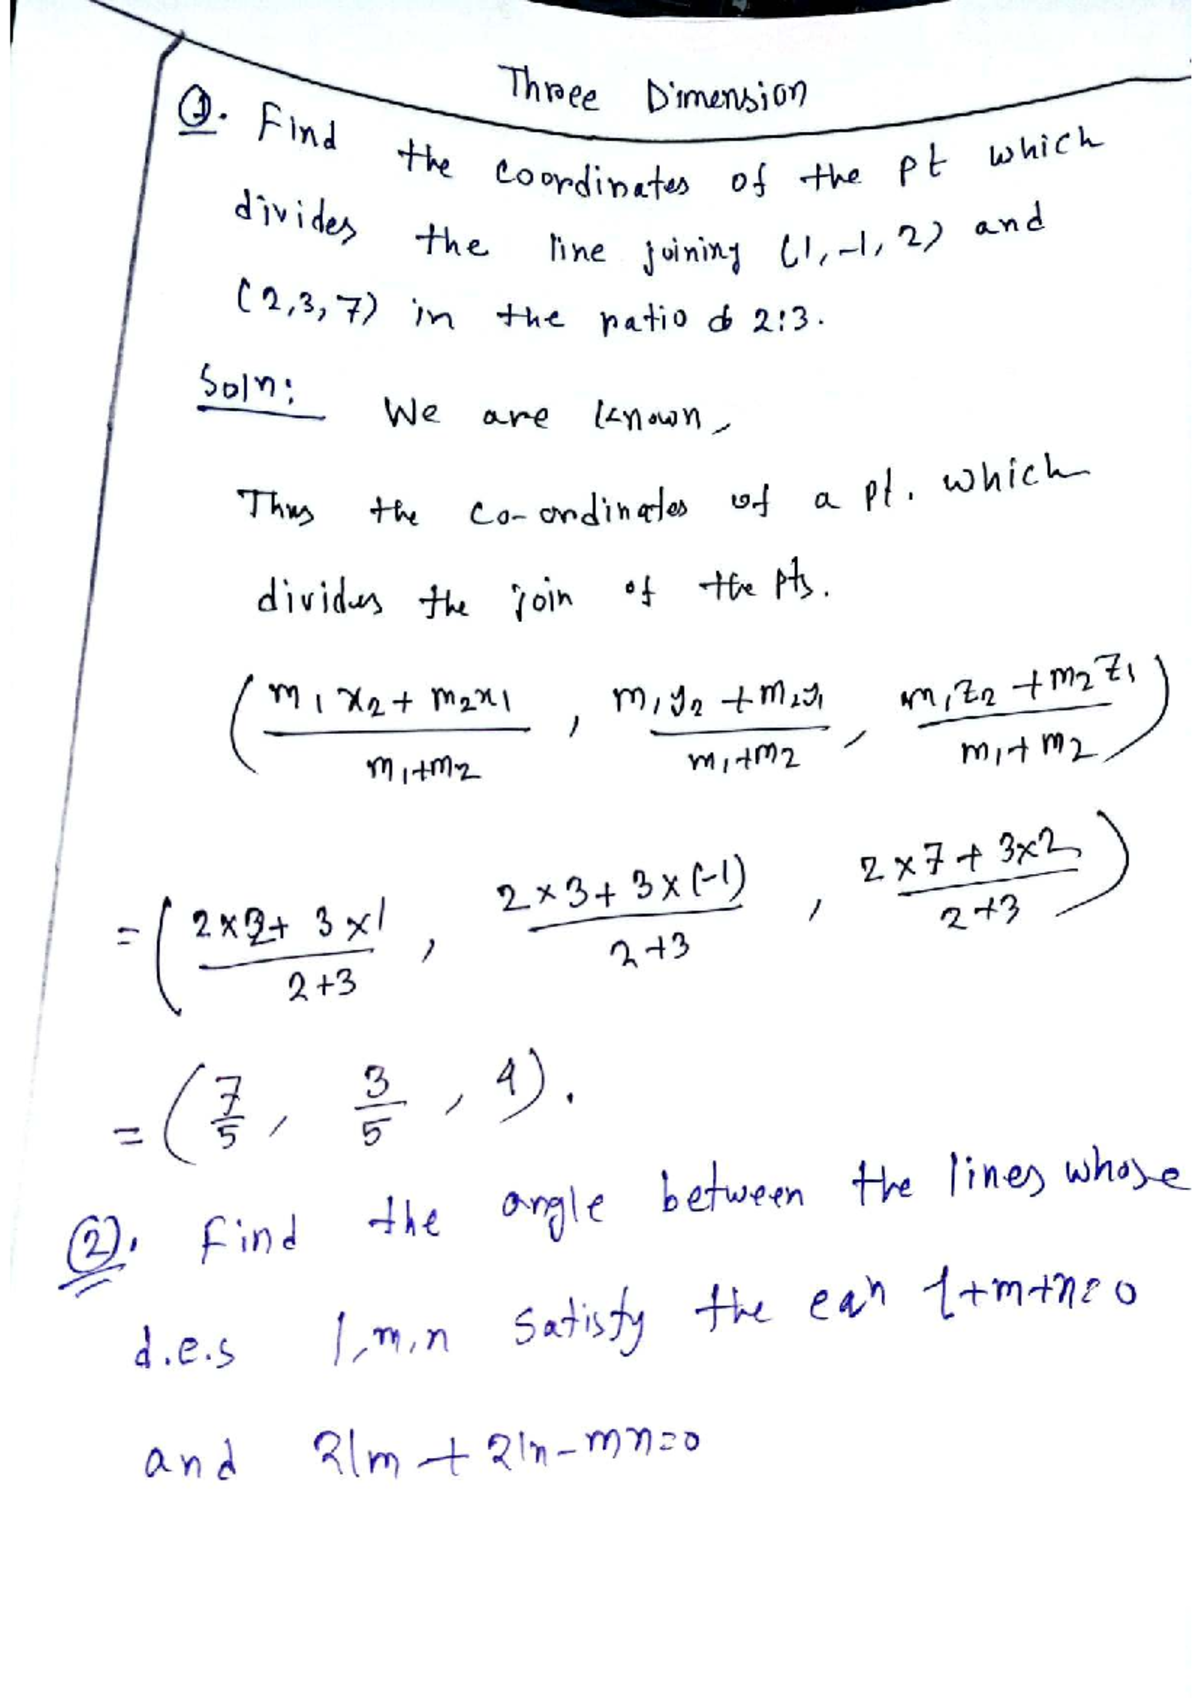 Three Dimension
①. Find the coordinates of the pt which
divides the line joining (1,-1,2) and
(2,3,7) in the ratio of 2:3.
Soln:
We are known,
Thus the co-ordinates of a pt. which
divides the join of the pts.
(m₁x₂+m₂x₁/m₁+m₂, m₁y₂+m₂y₁/m₁+m₂, m₁z₂+m₂z₁/m₁+m₂)
=(2×2+3×1/2+3, 2×3+3×(-1)/2+3, 2×7+3×2/2+3)
=(7/5, 3/5, 4).
②. Find the angle between the lines whose
d.c.s l,m,n satisfy the eqn l+m+n=0
and 2lm+2ln-mn=0